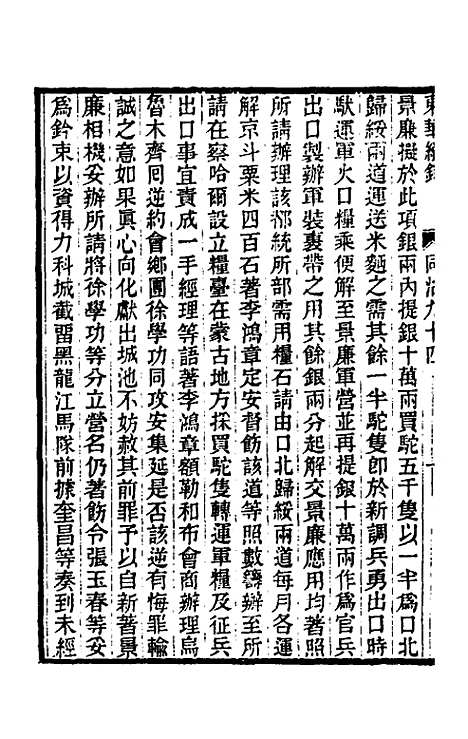 東華續錄　同治九十四
景廉擬於此項銀兩內提銀十萬兩買駝五千隻以一半爲口北
歸綏兩道運送米麵之需其餘一半駝隻卽於新調兵勇出口時
馱運軍火口糧乘便解至景廉軍營並再提銀十萬兩作爲官兵
出口製辦軍裝裹帶之用其餘銀兩分起解交景廉應用均著照
所請辦理該都統所部需用糧石請由口北歸綏兩道每月各運
解京斗粟米四百石著李鴻章定安督飭該道等照數籌辦至所
請在察哈爾設立糧臺在蒙古地方採買駝隻轉運軍糧及征兵
出口事宜責成一手經理等語著李鴻章額勒和布會商辦理烏
魯木齊回逆約會鄉團徐學功同攻安集延是否該逆有悔罪輸
誠之意如果眞心向化獻出城池不妨赦其前罪予以自新著景
廉相機妥辦所請將徐學功等分立營名仍著飭令張玉春等妥
爲鈐束以資得力科城截留黑龍江馬隊前據奎昌等奏到未經